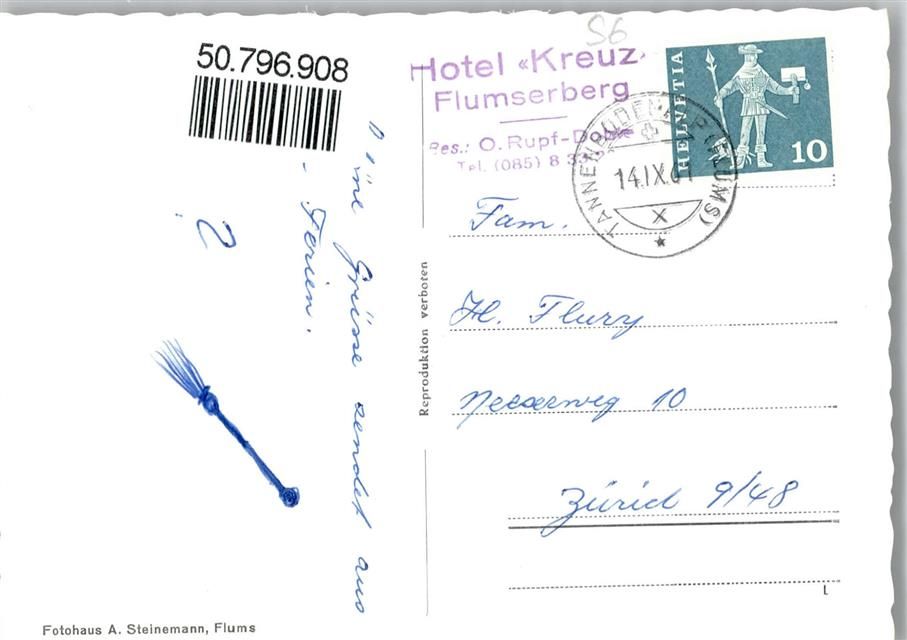 50.796.908
S6
Hotel «Kreuz»
Flumserberg
Bes.: O. Rupf-
Tel. (085) 8 33
HELVETIA
10
TANNENBODENALP (FLUMS)
14.IX.61
X
Grüsse sendet aus
- Ferien.
?
Reproduktion verboten
Fam.
H. Flury
10
Zürich 9/48
L
Fotohaus A. Steinemann, Flums